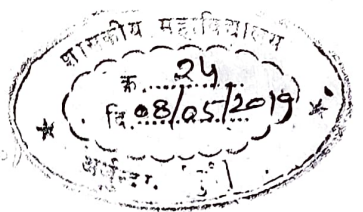 शासकीय महाविद्यालय
क्र. 24
दि. 08/05/2019